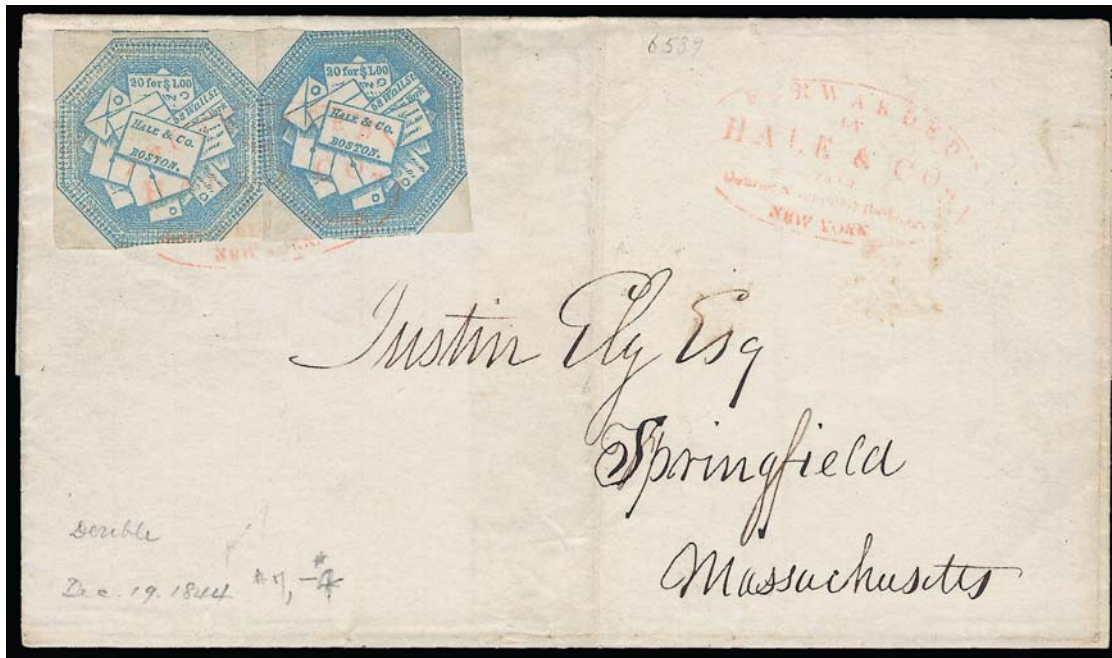 6539
20 for $1.00
58 Wall St.
HALE & Co.
BOSTON.
20 for $1.00
58 Wall St.
HALE & Co.
BOSTON.
NEW YORK
FORWARDED
BY
HALE & CO.
FROM
NEW YORK
Justin Ely Esq
Springfield
Massachusetts
Double
Dec. 19. 1844